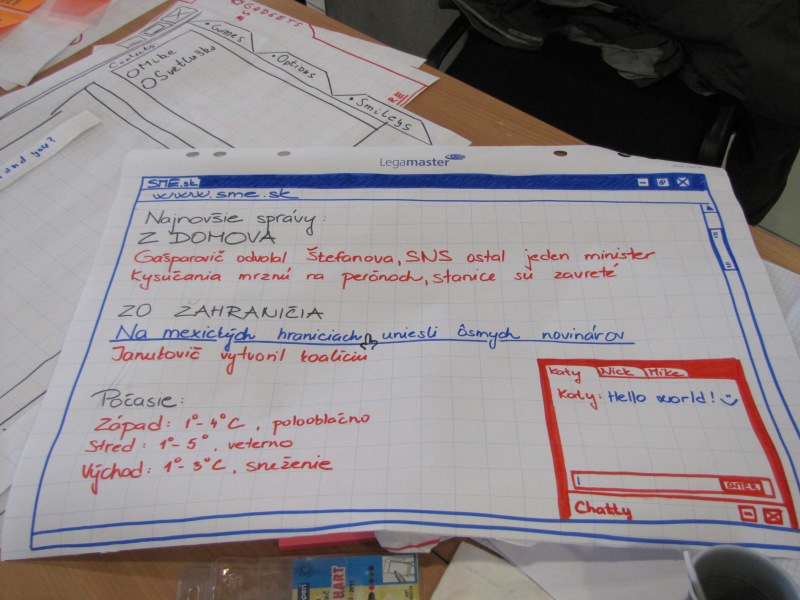 GADGETS
Contacts
Mike
Svetluško
• Games
• Options
• Smileys
and you?
Legamaster
SME.sk
www.sme.sk
Najnovšie správy:
Z DOMOVA
Gašparovič odvolal Štefanova, SNS ostal jeden minister
Kysučania mrznú na perónoch, stanice sú zavreté
ZO ZAHRANIČIA
Na mexických hraniciach uniesli ôsmych novinárov
Janukovič vytvoril koalíciu
Počasie:
Západ: 1°-4°C, polooblačno
Stred: 1°-5°, veterno
Východ: 1°-3°C, sneženie
Katy Nick Mike
Katy: Hello world!
ENTER
Chatty
HART